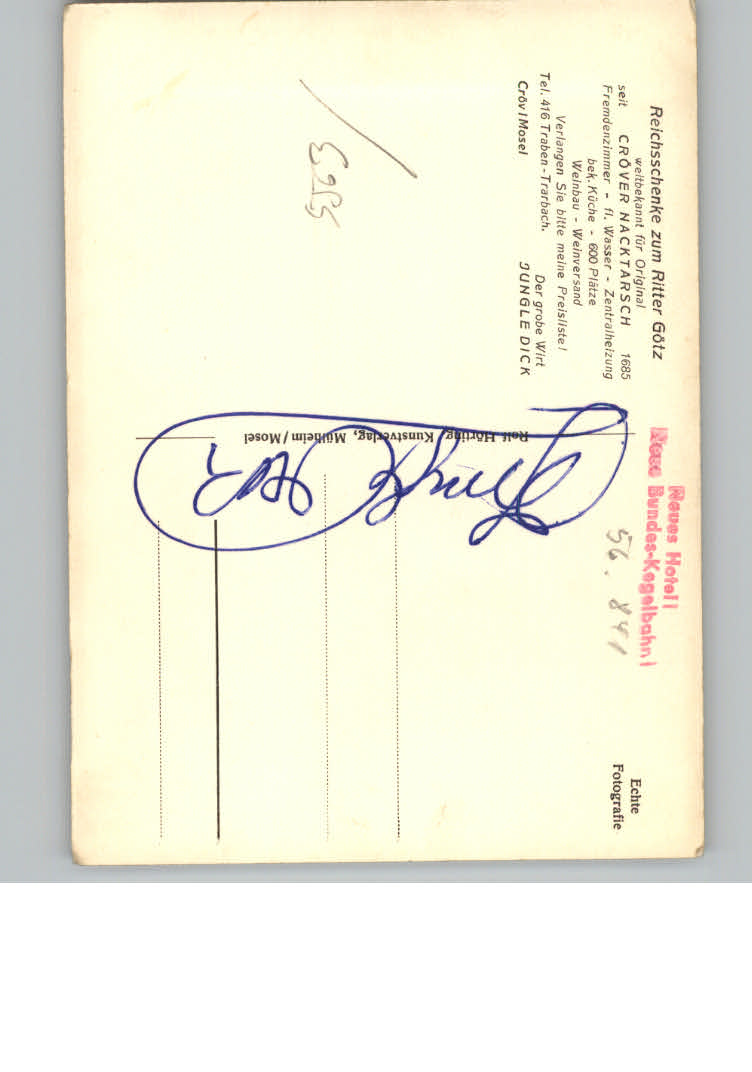 Reichsschenke zum Ritter Götz
weltbekannt für Original
seit CRÖVER NACKTARSCH 1685
Fremdenzimmer - fl. Wasser - Zentralheizung
bek. Küche - 600 Plätze
Weinbau - Weinversand
Verlangen Sie bitte meine Preisliste!
Tel. 416 Traben-Trarbach.
Der grobe Wirt
Cröv/Mosel
JUNGLE DICK
5255
Neues Hotel!
Neue Bundes-Kegelbahn!
56. 841
Echte
Fotografie
Rolf Hörling, Kunstverlag, Mülheim/Mosel